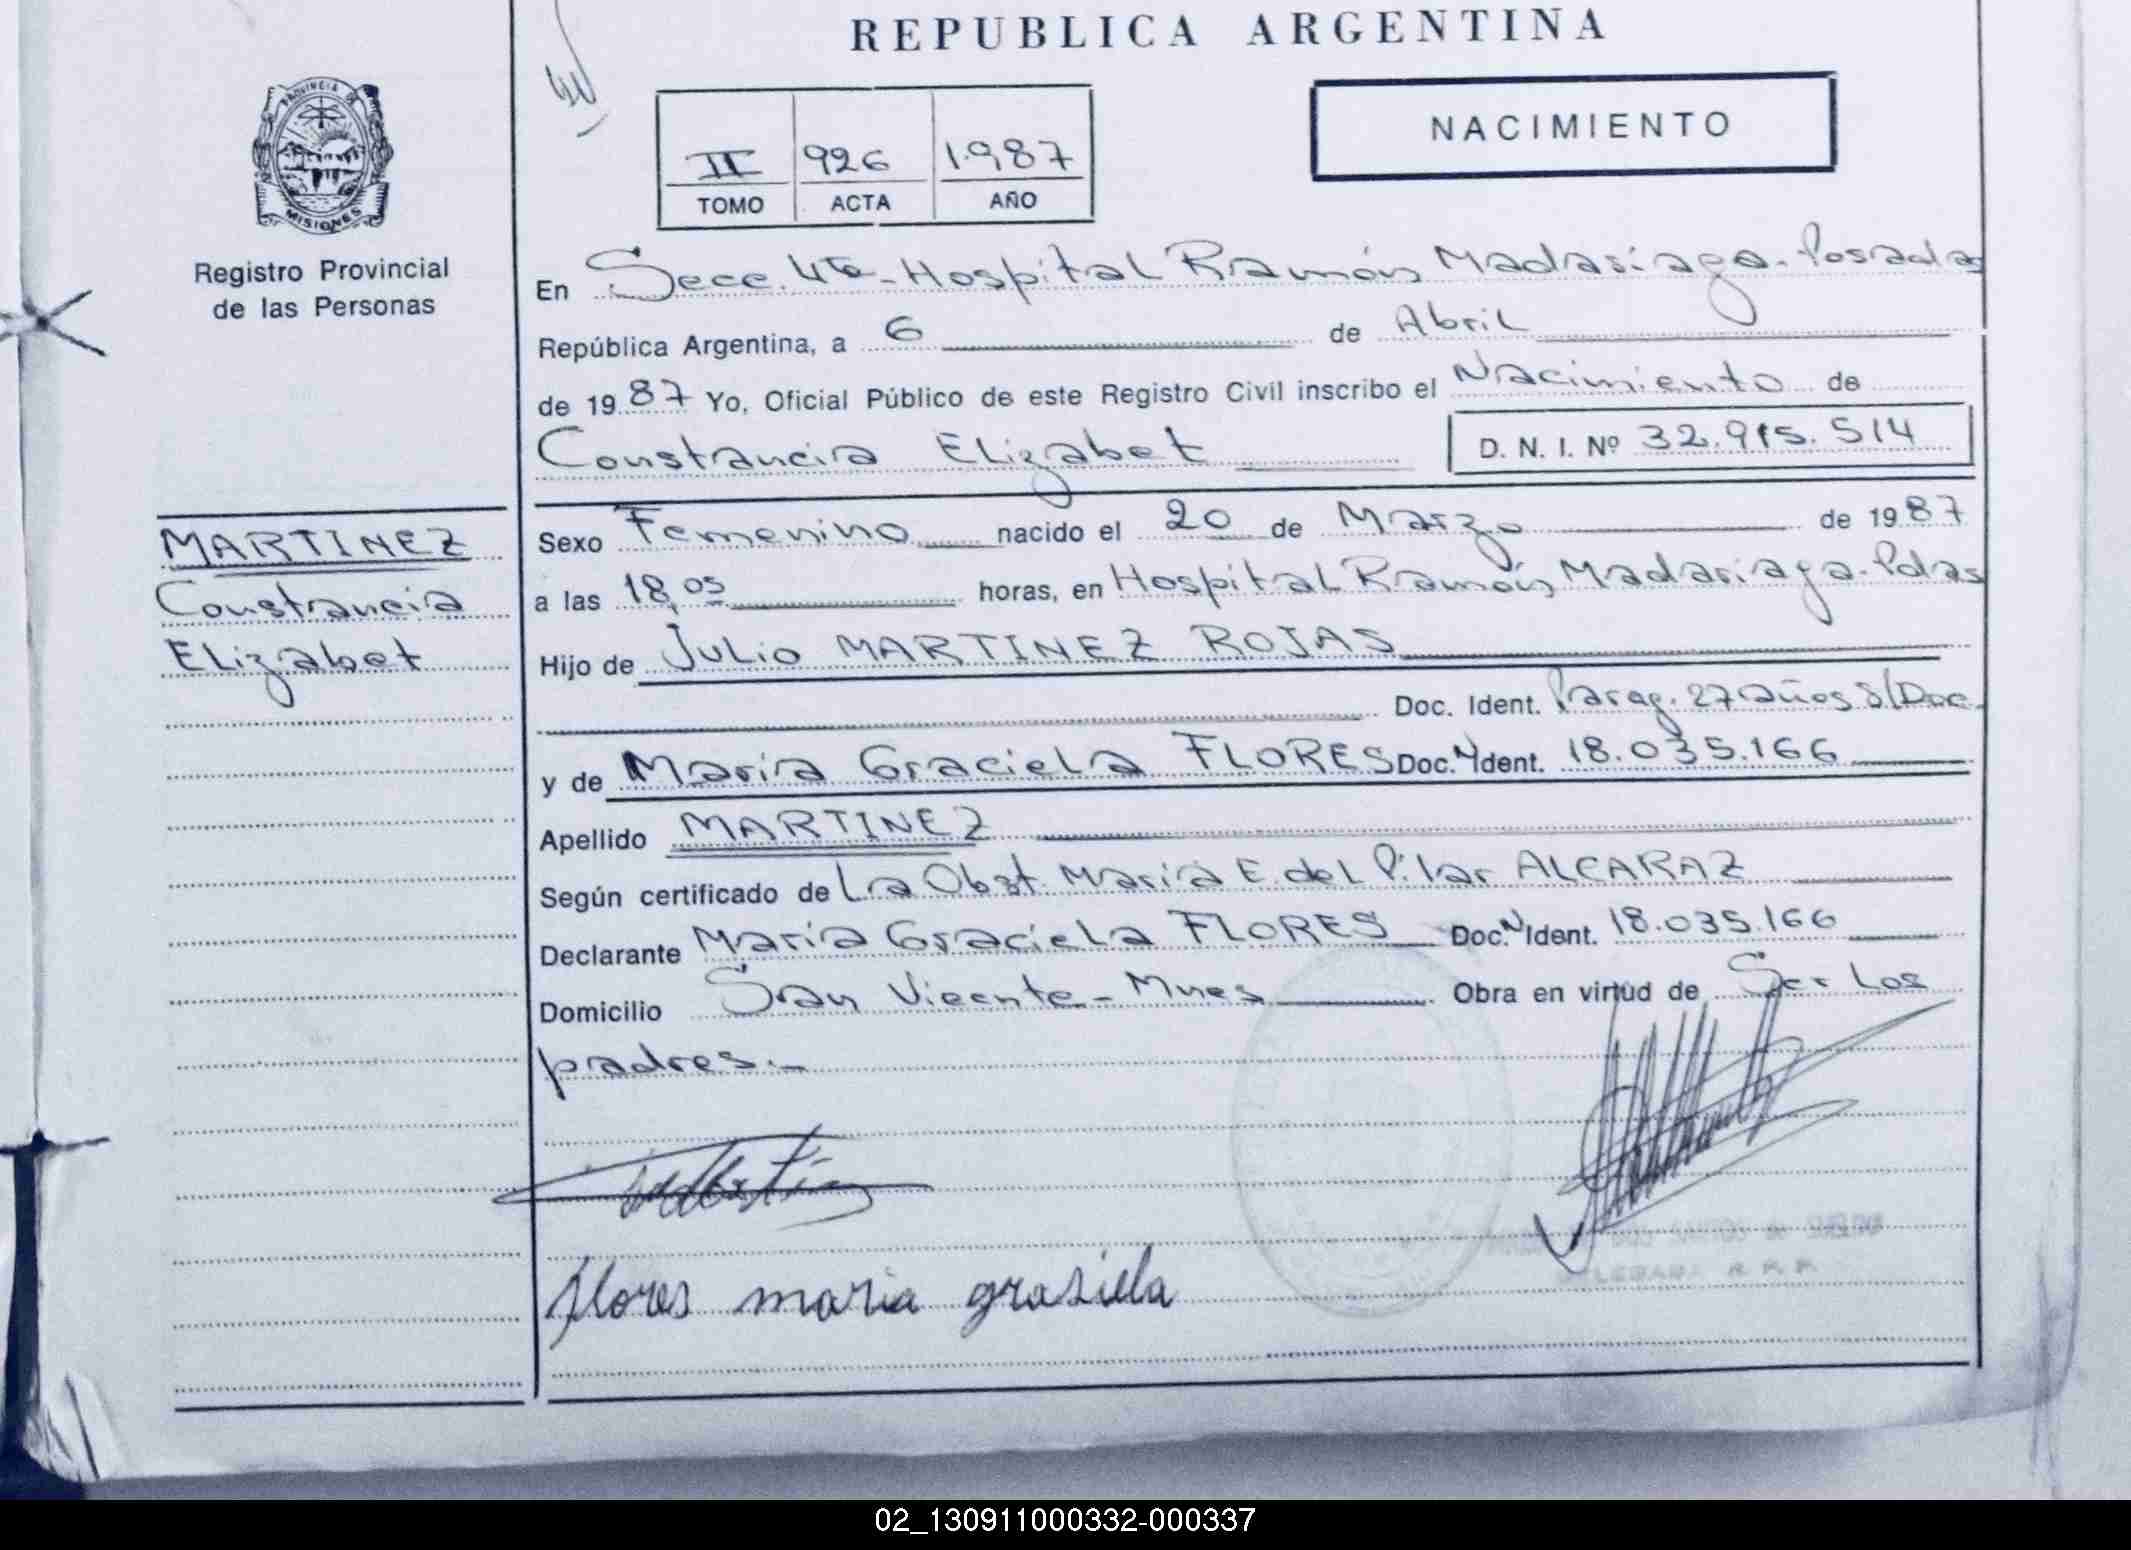 REPUBLICA ARGENTINA
PROVINCIA DE
MISIONES
Registro Provincial
de las Personas
II 926 1.987
TOMO ACTA AÑO
NACIMIENTO
En Secc. 4ta - Hospital Ramón Madariaga - Posadas
República Argentina, a 6 de Abril
de 1987 Yo, Oficial Público de este Registro Civil inscribo el Nacimiento de
Constancia Elizabet D. N. I. Nº 32.915.514
MARTINEZ
Constancia
Elizabet
Sexo Femenino nacido el 20 de Marzo de 1987
a las 18,05 horas, en Hospital Ramón Madariaga - Pdas
Hijo de Julio MARTINEZ ROJAS
Doc. Ident. Parag. 27 años S/Doc.
y de Maria Graciela FLORES Doc. N Ident. 18.035.166
Apellido MARTINEZ
Según certificado de La Obst. Maria E. del Pilar ALCARAZ
Declarante Maria Graciela FLORES Doc. N Ident. 18.035.166
Domicilio San Vicente - Mnes Obra en virtud de Ser los
padres.-
flores maria grasiela
DELEGADA R. P. P.
02_130911000332-000337